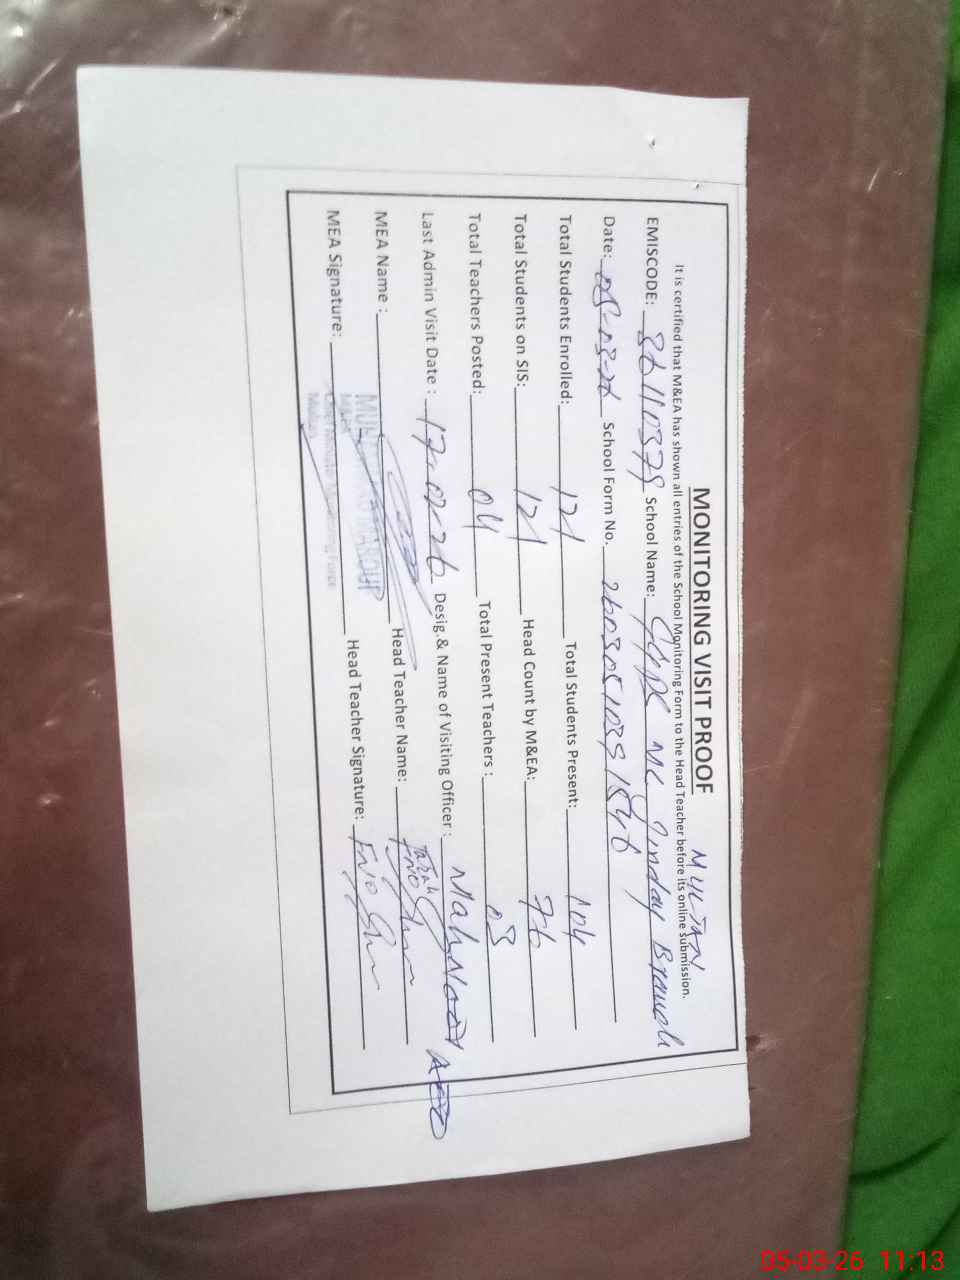 MONITORING VISIT PROOF
MULTAN
It is certified that M&EA has shown all entries of the School Monitoring Form to the Head Teacher before its online submission.
EMISCODE: 36110379 School Name: GGPS MC Jinday Branch
Date: 05-03-26 School Form No. 26030510391546
Total Students Enrolled: 121 Total Students Present: 104
Total Students on SIS: 121 Head Count by M&EA: 76
Total Teachers Posted: 04 Total Present Teachers : 03
Last Admin Visit Date : 17-02-26 Desig.& Name of Visiting Officer : Mahnoor AEO
MEA Name : Head Teacher Name:
MEA Signature: Head Teacher Signature:
Multan
05-03-26 11:13